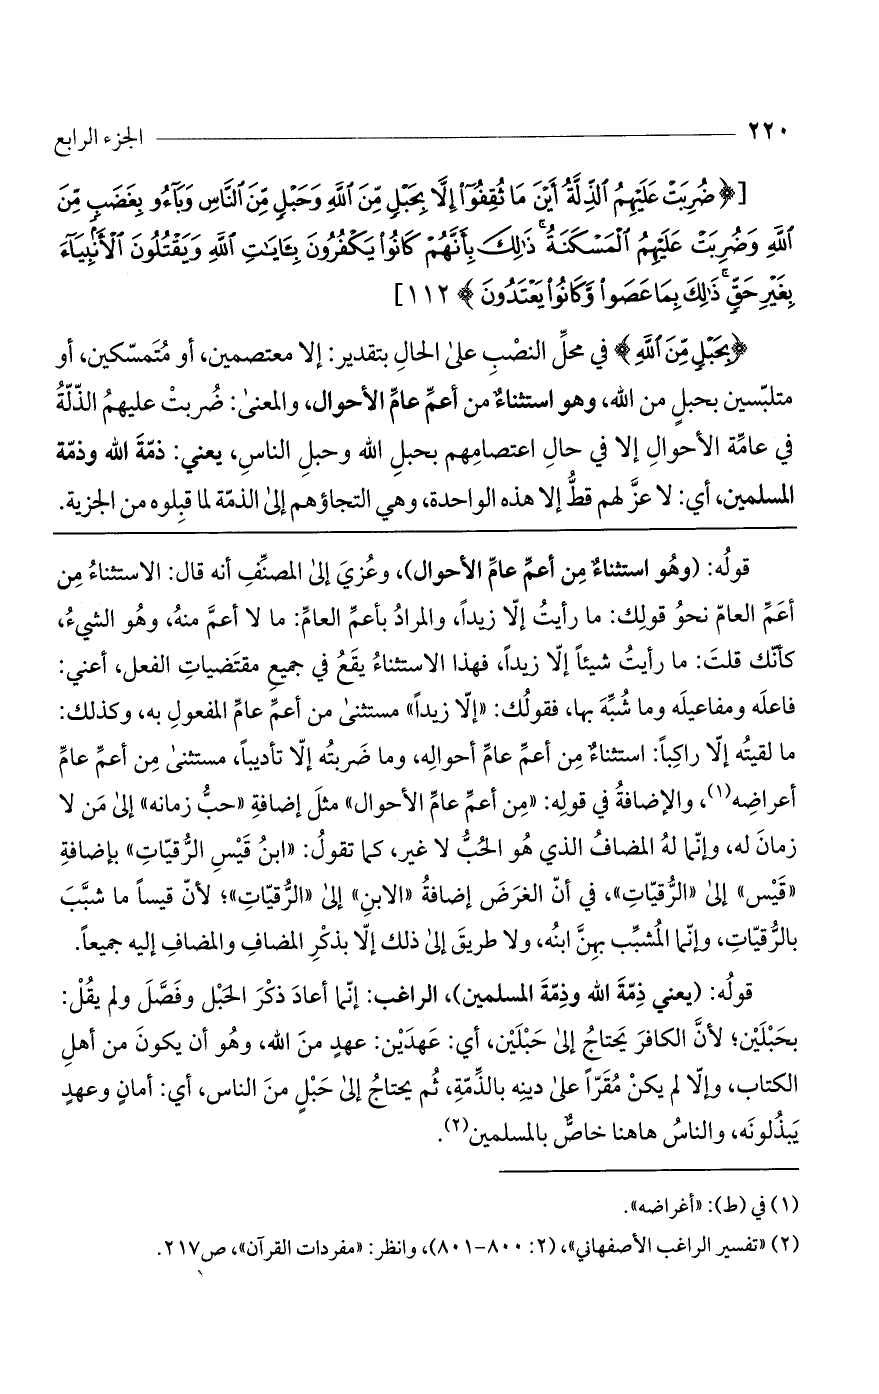 ٢٢٠ الجزء الرابع
[﴿ضُرِبَتْ عَلَيْهِمُ ٱلذِّلَّةُ أَيْنَ مَا ثُقِفُوٓا۟ إِلَّا بِحَبْلٍ مِّنَ ٱللَّهِ وَحَبْلٍ مِّنَ ٱلنَّاسِ وَبَآءُو بِغَضَبٍ مِّنَ
ٱللَّهِ وَضُرِبَتْ عَلَيْهِمُ ٱلْمَسْكَنَةُ ۚ ذَٰلِكَ بِأَنَّهُمْ كَانُوا۟ يَكْفُرُونَ بِـَٔايَـٰتِ ٱللَّهِ وَيَقْتُلُونَ ٱلْأَنۢبِيَآءَ
بِغَيْرِ حَقٍّ ۚ ذَٰلِكَ بِمَا عَصَوا۟ وَّكَانُوا۟ يَعْتَدُونَ﴾ ١١٢]
﴿بِحَبْلٍ مِّنَ ٱللَّهِ﴾ في محلِّ النصْبِ على الحالِ بتقدير: إلا معتصمين، أو مُتَمسّكين، أو
متلبّسين بحبلٍ من الله، وهو استثناءٌ من أعمِّ عامِّ الأحوال، والمعنىٰ: ضُربتْ عليهمُ الذّلّةُ
في عامِّة الأحوالِ إلا في حالِ اعتصامِهم بحبلِ الله وحبلِ الناسِ، يعني: ذمّةَ الله وذمّة
المسلمين، أي: لا عزَّ لهم قطُّ إلا هذه الواحدة، وهي التجاؤهم إلىٰ الذمّة لما قبِلوه من الجزية.
قولُه: (وهُو استثناءٌ مِن أعمِّ عامِّ الأحوال)، وعُزيَ إلىٰ المصنِّفِ أنه قال: الاستثناءُ مِن
أعَمِّ العامّ نحوُ قولِك: ما رأيتُ إلّا زيداً، والمرادُ بأعمِّ العامِّ: ما لا أعمَّ منهُ، وهُو الشيءُ،
كأنّك قلتَ: ما رأيتُ شيئاً إلّا زيداً، فهذا الاستثناءُ يقَعُ في جميعِ مقتَضياتِ الفعل، أعني:
فاعلَه ومفاعيلَه وما شُبِّهَ بها، فقولُك: «إلّا زيداً» مستثنىٰ من أعمِّ عامِّ المفعولِ به، وكذلك:
ما لقيتُه إلّا راكِباً: استثناءٌ مِن أعمِّ عامِّ أحوالِه، وما ضَربتُه إلّا تأديباً، مستثنىٰ مِن أعمِّ عامِّ
أعراضِه(١)، والإضافةُ في قولِه: «مِن أعمِّ عامِّ الأحوال» مثلَ إضافةِ «حبُّ زمانه» إلىٰ مَن لا
زمانَ له، وإنّما لهُ المضافُ الذي هُو الحُبُّ لا غير، كما تقولُ: «ابنُ قَيْسِ الرُّقيّاتِ» بإضافةِ
«قَيْس» إلىٰ «الرُّقيّاتِ»، في أنّ الغرَضَ إضافةُ «الابنِ» إلىٰ «الرُّقيّاتِ»؛ لأنّ قيساً ما شبَّبَ
بالرُّقيّاتِ، وإنّما المُشبِّب بهنَّ ابنُه، ولا طريقَ إلىٰ ذلك إلّا بذكْرِ المضافِ والمضافِ إليه جميعاً.
قولُه: (يعني ذِمّةَ الله وذِمّةَ المسلمين)، الراغب: إنّما أعادَ ذكْرَ الحَبْل وفَصَّلَ ولم يقُلْ:
بحَبْلَيْن؛ لأنَّ الكافرَ يَحتاجُ إلىٰ حَبْلَيْن، أي: عَهدَيْن: عهدٍ منَ الله، وهُو أن يكونَ من أهلِ
الكتاب، وإلّا لم يكنْ مُقَرّاً علىٰ دينِه بالذِّمّةِ، ثُم يحتاجُ إلىٰ حَبْلٍ منَ الناس، أي: أمانٍ وعهدٍ
يَبذُلونَه، والناسُ هاهنا خاصٌّ بالمسلمين(٢).
(١) في (ط): «أغراضه».
(٢) «تفسير الراغب الأصفهاني»، (٢: ٨٠٠-٨٠١)، وانظر: «مفردات القرآن»، ص٢١٧.